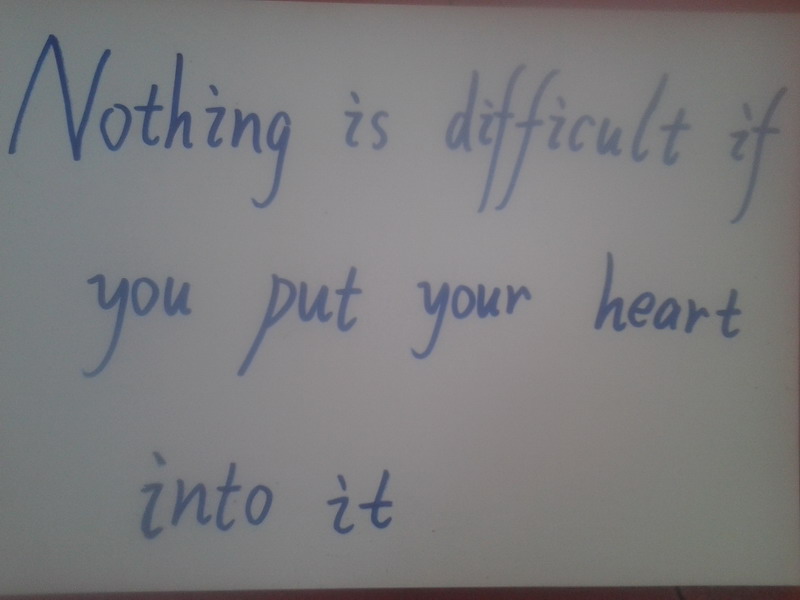 Nothing is difficult if
you put your heart
into it